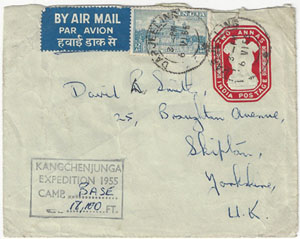 BY AIR MAIL
PAR AVION
हवाई डाक से
TWO ANNAS
INDIA POSTAGE
David R. Smith,
25, Broughton Avenue,
Shipton,
Yorkshire,
U.K.
KANGCHENJUNGA
EXPEDITION 1955
CAMP BASE
18,100 FT.